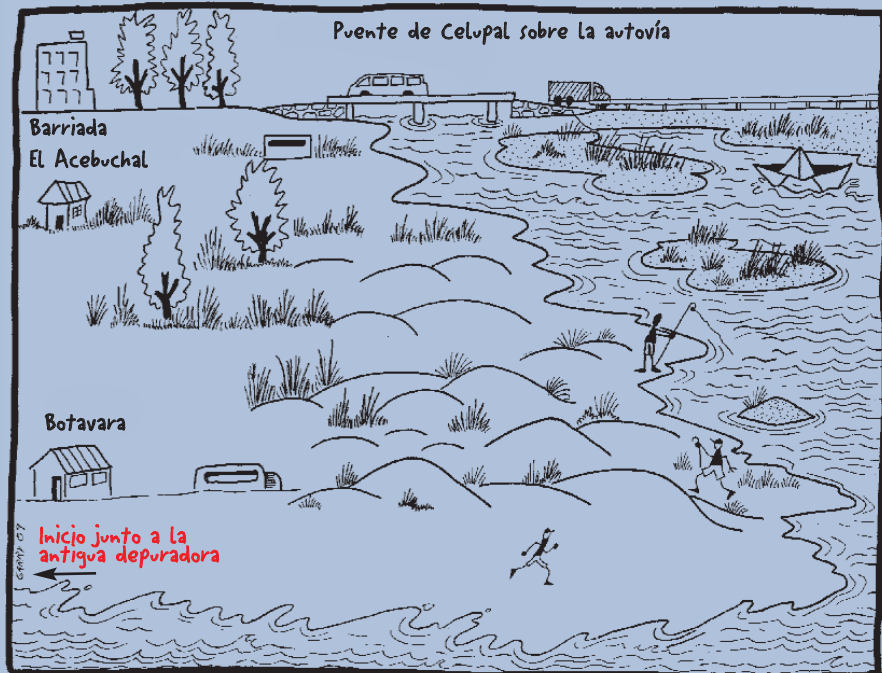 Puente de Celupal sobre la autovía
Barriada
El Acebuchal
Botavara
Inicio junto a la
antigua depuradora